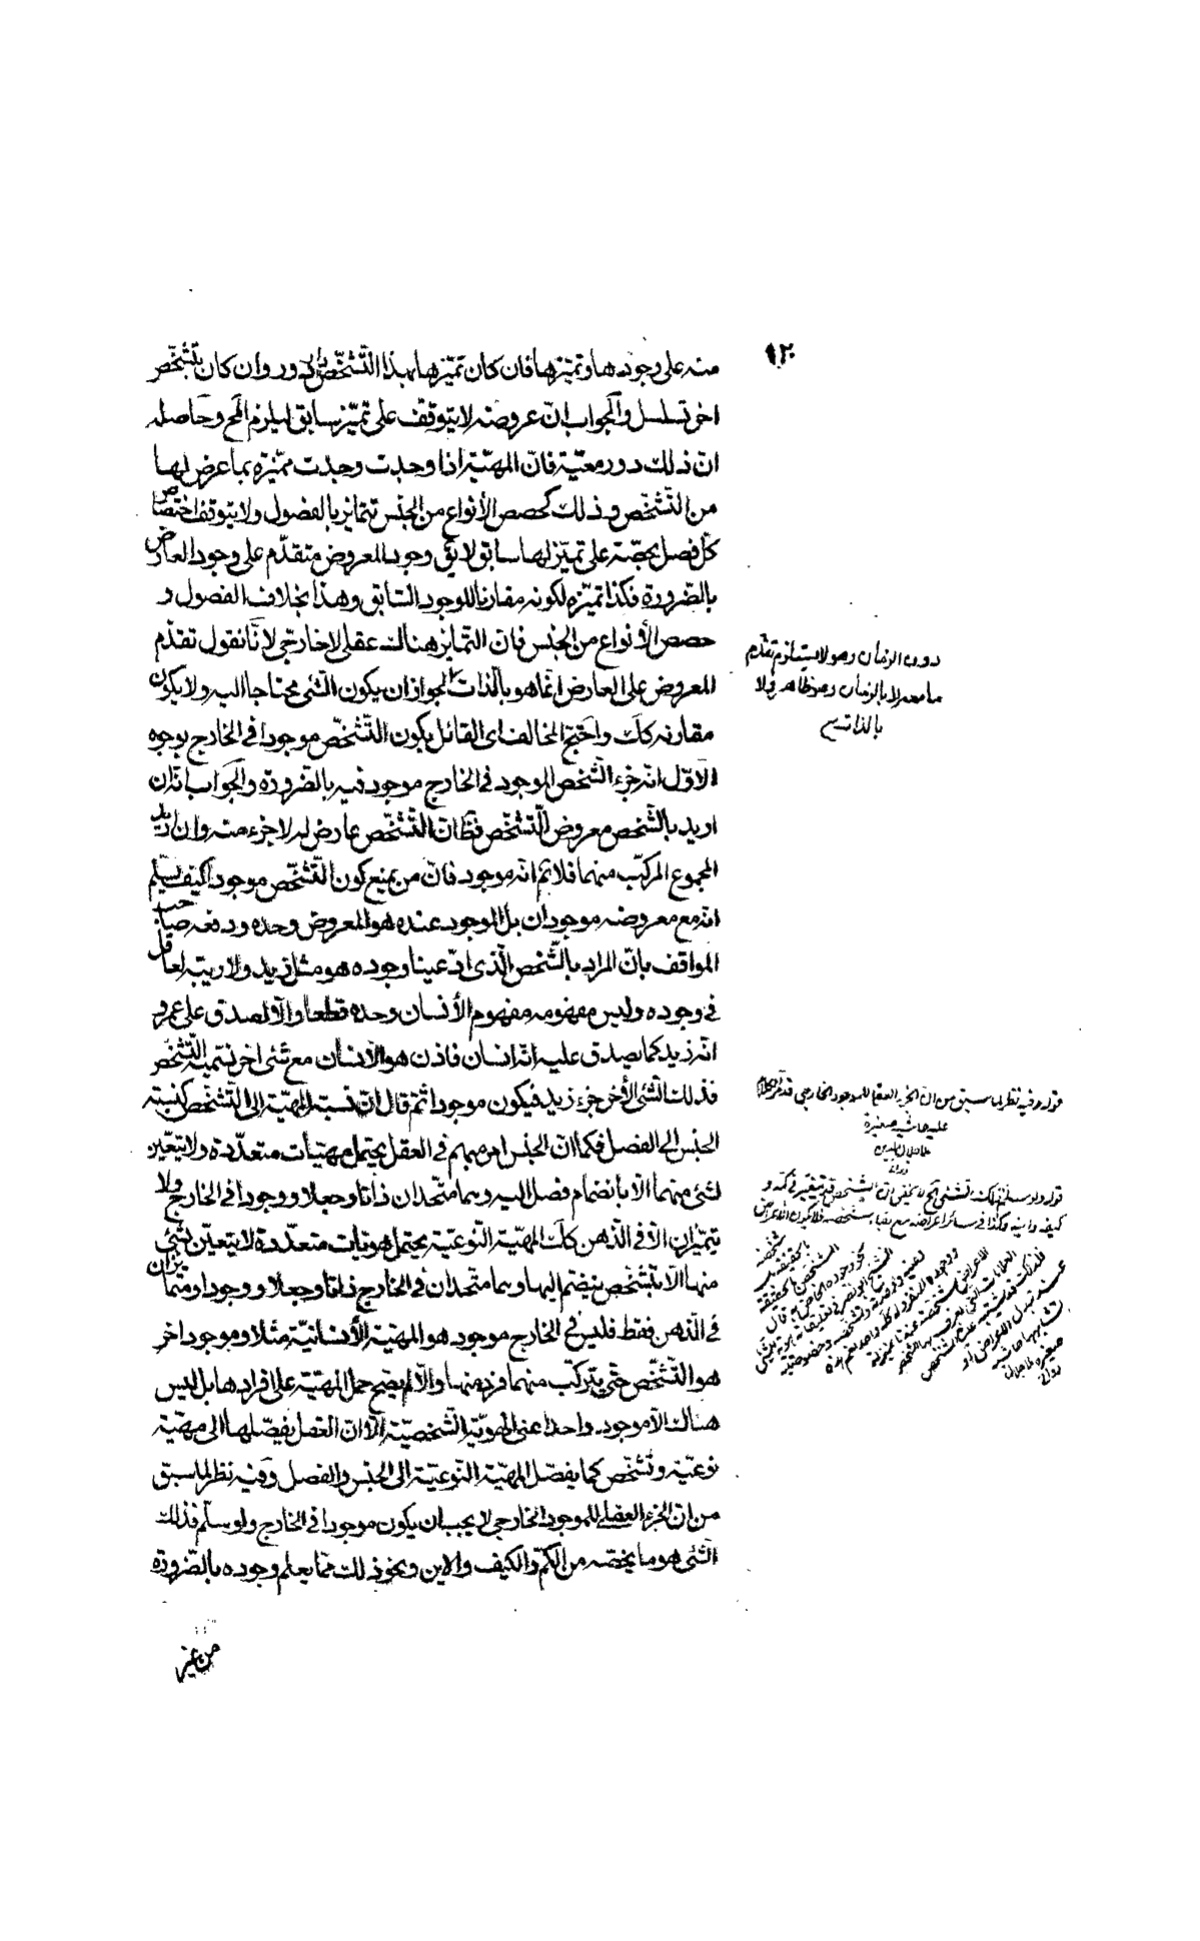 ١٢٠
منه على وجودها وتميّزها فان كان تميّزها بهذا التّشخّص دور وان كان بتشخّص
اخر تسلسل والجواب انّ عروضه لا يتوقّف على تميّز سابق ليلزم المح وحاصله
انّ ذلك دور معيّة فانّ المهيّة اذا وجدت وجدت مميّزه بما عرض لها
من التّشخّص وذلك كحصص الأنواع من الجنس تتمايز بالفصول ولا يتوقف اختصاص
كل فصل بحصّته على تميّز لها سابق لا يق وجود المعروض متقدّم على وجود العارض
بالضرورة فكذا تميّزه لكونه مقارنا للوجود السّابق وهذا بخلاف الفصول و
حصص الأنواع من الجنس فانّ التمايز هنالك عقلى لا خارجى لانّا نقول تقدّم
المعروض على العارض انّما هو بالذات لجواز ان يكون الشّئ محتاجا اليه ولا يكون
مقارنه كك واحتجّ المخالف اى القائل بكون التّشخّص موجودا فى الخارج بوجوه
الاوّل انّه جزء الشّخص الموجود فى الخارج موجود فيه بالضرورة والجواب بانّه ان
اريد بالشّخص معروض التّشخّص فظ انّ التّشخّص عارض له لا جزء منه وان اريد
المجموع المركّب منهما فلا ثم انّه موجود فانّ من يمنع كون التّشخّص موجودا كيف يسلّم
انّه مع معروضه موجودان بل الموجود عنده هو المعروض وحده ودفعه صاحب
المواقف بانّ المراد بالشّخص الّذى ادّعينا وجوده هو مثل زيد ولا ريبة لعاقل
فى وجوده وليس مفهومه مفهوم الأنسان وحده قطعا والّا لصدق على عمرو
انّه زيد كما يصدق عليه انّه انسان فاذن هو الأنسان مع شئ اخر نسمّيه التّشخّص
فذلك الشّئ الأخر جزء زيد فيكون موجودا ثمّ قال انّ نسبة المهيّة الى التّشخّص كنسبة
الجنس الى الفصل فكما انّ الجنس امر مبهم فى العقل يحتمل مهيّات متعدّدة ولا يتعيّن
لشئ منهما الّا بانضمام فصل اليه وهما متّحدان ذاتا وجعلا ووجودا فى الخارج ولا
يتميّزان الّا فى الذهن كك المهيّة النّوعيّة يحتمل هويّات متعدّدة لا يتعيّن لشئ
منها الّا بتشخّص ينضم اليها وهما متّحدان فى الخارج ذاتا وجعلا ووجودا ومتمايزان
فى الذّهن فقط فليس فى الخارج موجود هو المهيّة الأنسانيّة مثلا وموجود اخر
هو التّشخّص حتّى يتركّب منهما فرد منها والّا لم يصح حمل المهيّة على افرادها بل ليس
هناك الّا موجود واحد اعنى الهويّة الشّخصيّة الّا انّ العقل يفصّلها الى مهيّة
نوعيّة وتشخّص كما يفصّل المهيّة النّوعيّة الى الجنس والفصل وفيه نظر لما سبق
من انّ الجزء العقلى للموجود الخارجى لا يجب ان يكون موجودا فى الخارج ولو سلّم فذلك
الشّئ هو ما يخصّه من الكمّ والكيف والاين ونحو ذلك ممّا يعلم وجوده بالضّرورة
من غير
دون الزمان وهو لا يستلزم تقدّم
ما معه لا بالزمان وهو ظاهر ولا
بالذات
قوله وفيه نظر لما سبق من ان الجزء العقلى للموجود الخارجى
عليه حاشية صغيرة
قوله ولو سلم فذلك الشئ